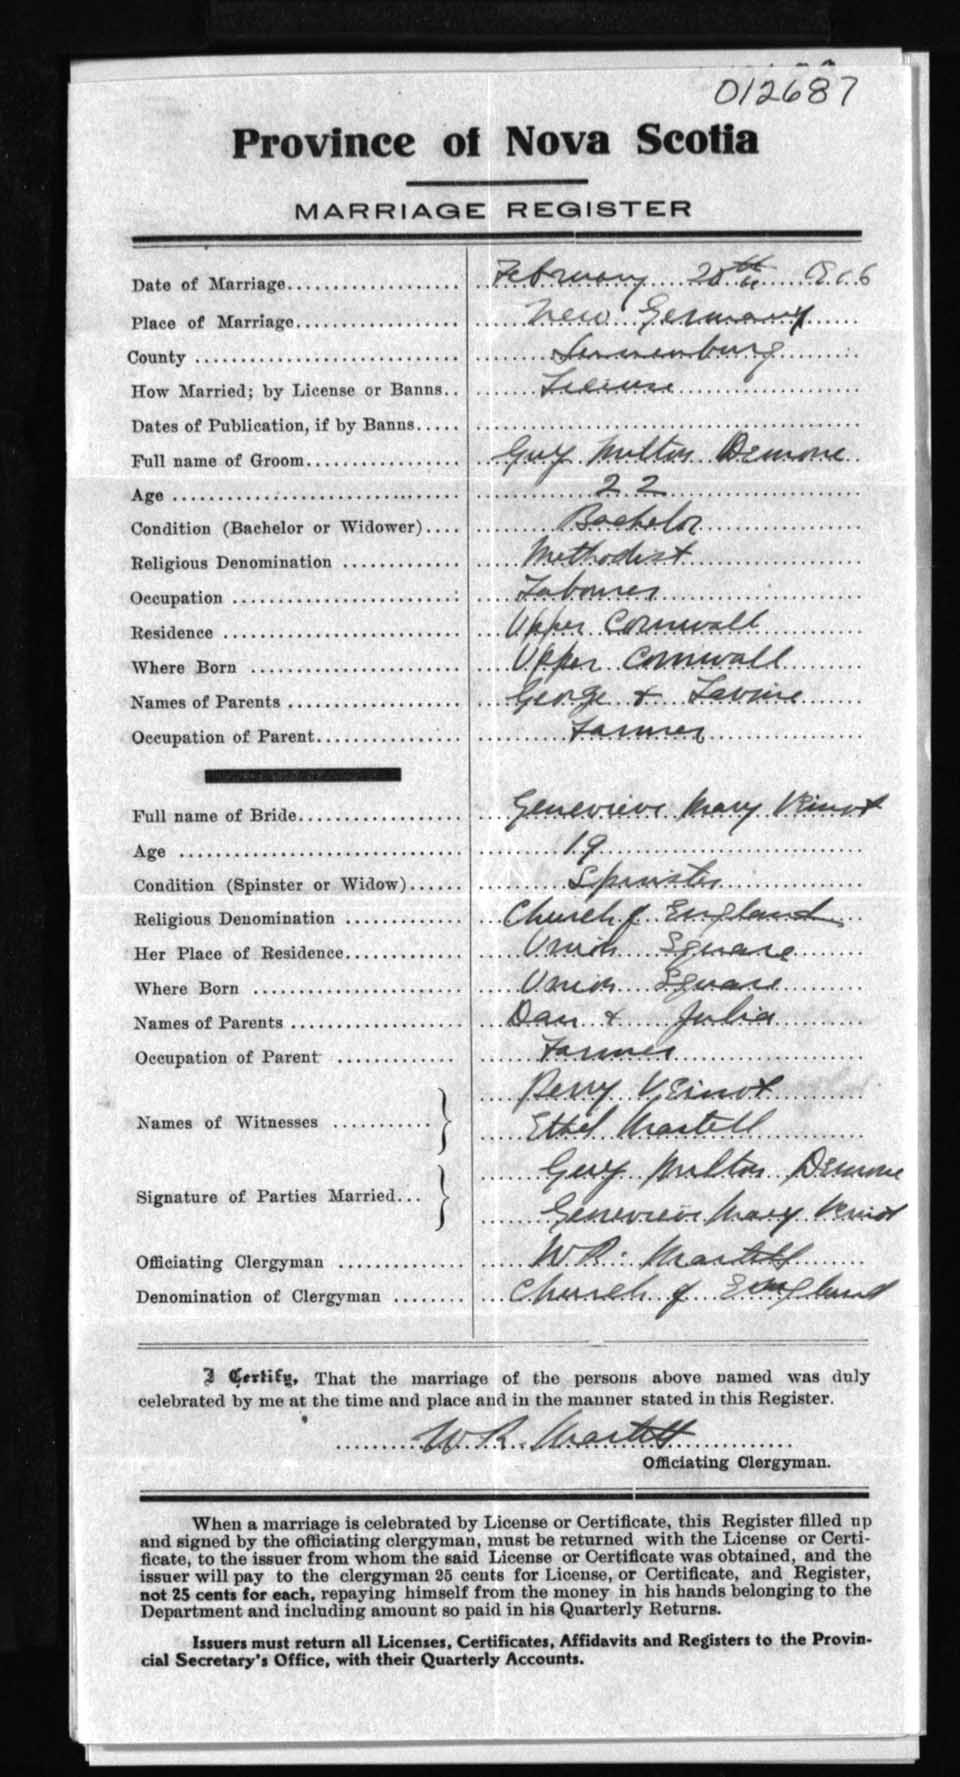 012687
Province of Nova Scotia
MARRIAGE REGISTER
Date of Marriage February 20th 1906
Place of Marriage New Germany
County Lunenburg
How Married; by License or Banns License
Dates of Publication, if by Banns
Full name of Groom Guy Milton Demone
Age 22
Condition (Bachelor or Widower) Bachelor
Religious Denomination Methodist
Occupation Labourer
Residence Upper Cornwall
Where Born Upper Cornwall
Names of Parents George & Lavine
Occupation of Parent Farmer
Full name of Bride Genevieve Mary Veinot
Age 19
Condition (Spinster or Widow) Spinster
Religious Denomination Church of England
Her Place of Residence Union Square
Where Born Union Square
Names of Parents Dan & Julia
Occupation of Parent Farmer
Names of Witnesses Perry Veinot
Ethel Martell
Signature of Parties Married Guy Milton Demone
Genevieve Mary Veinot
Officiating Clergyman W R. Martell
Denomination of Clergyman Church of England
I Certify, That the marriage of the persons above named was duly
celebrated by me at the time and place and in the manner stated in this Register.
W R. Martell
Officiating Clergyman.
When a marriage is celebrated by License or Certificate, this Register filled up
and signed by the officiating clergyman, must be returned with the License or Certi-
ficate, to the issuer from whom the said License or Certificate was obtained, and the
issuer will pay to the clergyman 25 cents for License, or Certificate, and Register,
not 25 cents for each, repaying himself from the money in his hands belonging to the
Department and including amount so paid in his Quarterly Returns.
Issuers must return all Licenses, Certificates, Affidavits and Registers to the Provin-
cial Secretary's Office, with their Quarterly Accounts.